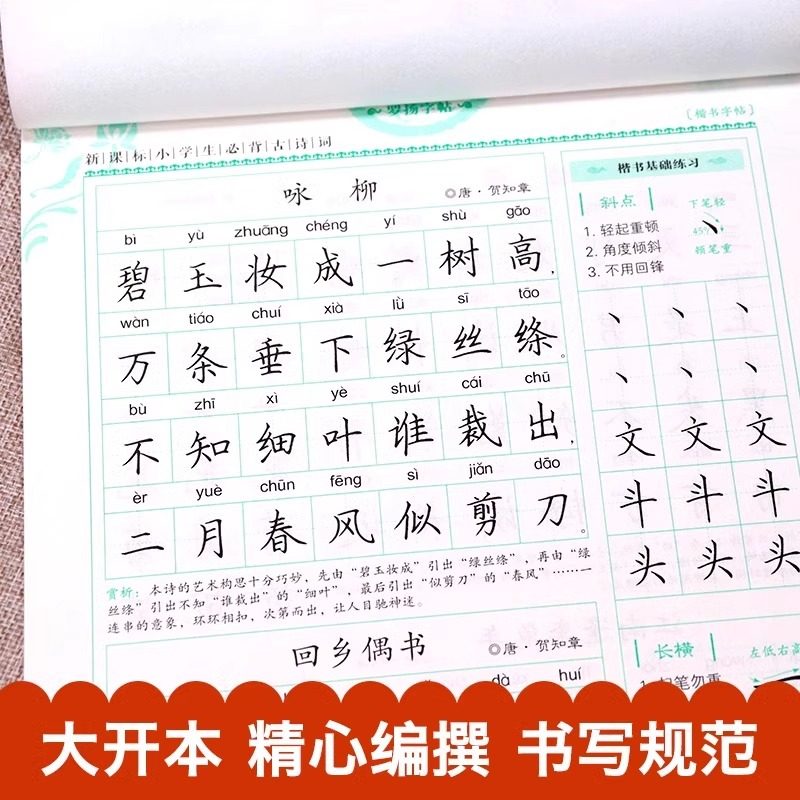 罗扬字帖
[楷书字帖]
新课标小学生必背古诗词
咏 柳
◎唐·贺知章
bì yù zhuāng chéng yí shù gāo
碧玉妆成一树高，
wàn tiáo chuí xià lǜ sī tāo
万条垂下绿丝绦。
bù zhī xì yè shuí cái chū
不知细叶谁裁出，
èr yuè chūn fēng sì jiǎn dāo
二月春风似剪刀。
赏析：本诗的艺术构思十分巧妙，先由“碧玉妆成”引出“绿丝绦”，再由“绿
丝绦”引出不知“谁裁出”的“细叶”，最后引出“似剪刀”的“春风”……一
连串的意象，环环相扣，次第而出，让人目驰神迷。
回乡偶书
◎唐·贺知章
dà huí
楷书基础练习
斜点
下笔轻
45°
领笔重
1. 轻起重顿
2. 角度倾斜
3. 不用回锋
丶 丶 丶
丶 丶 丶
文 文 文
斗 斗 斗
头 头 头
长横
左低右高
1. 起笔勿重
大开本 精心编撰 书写规范